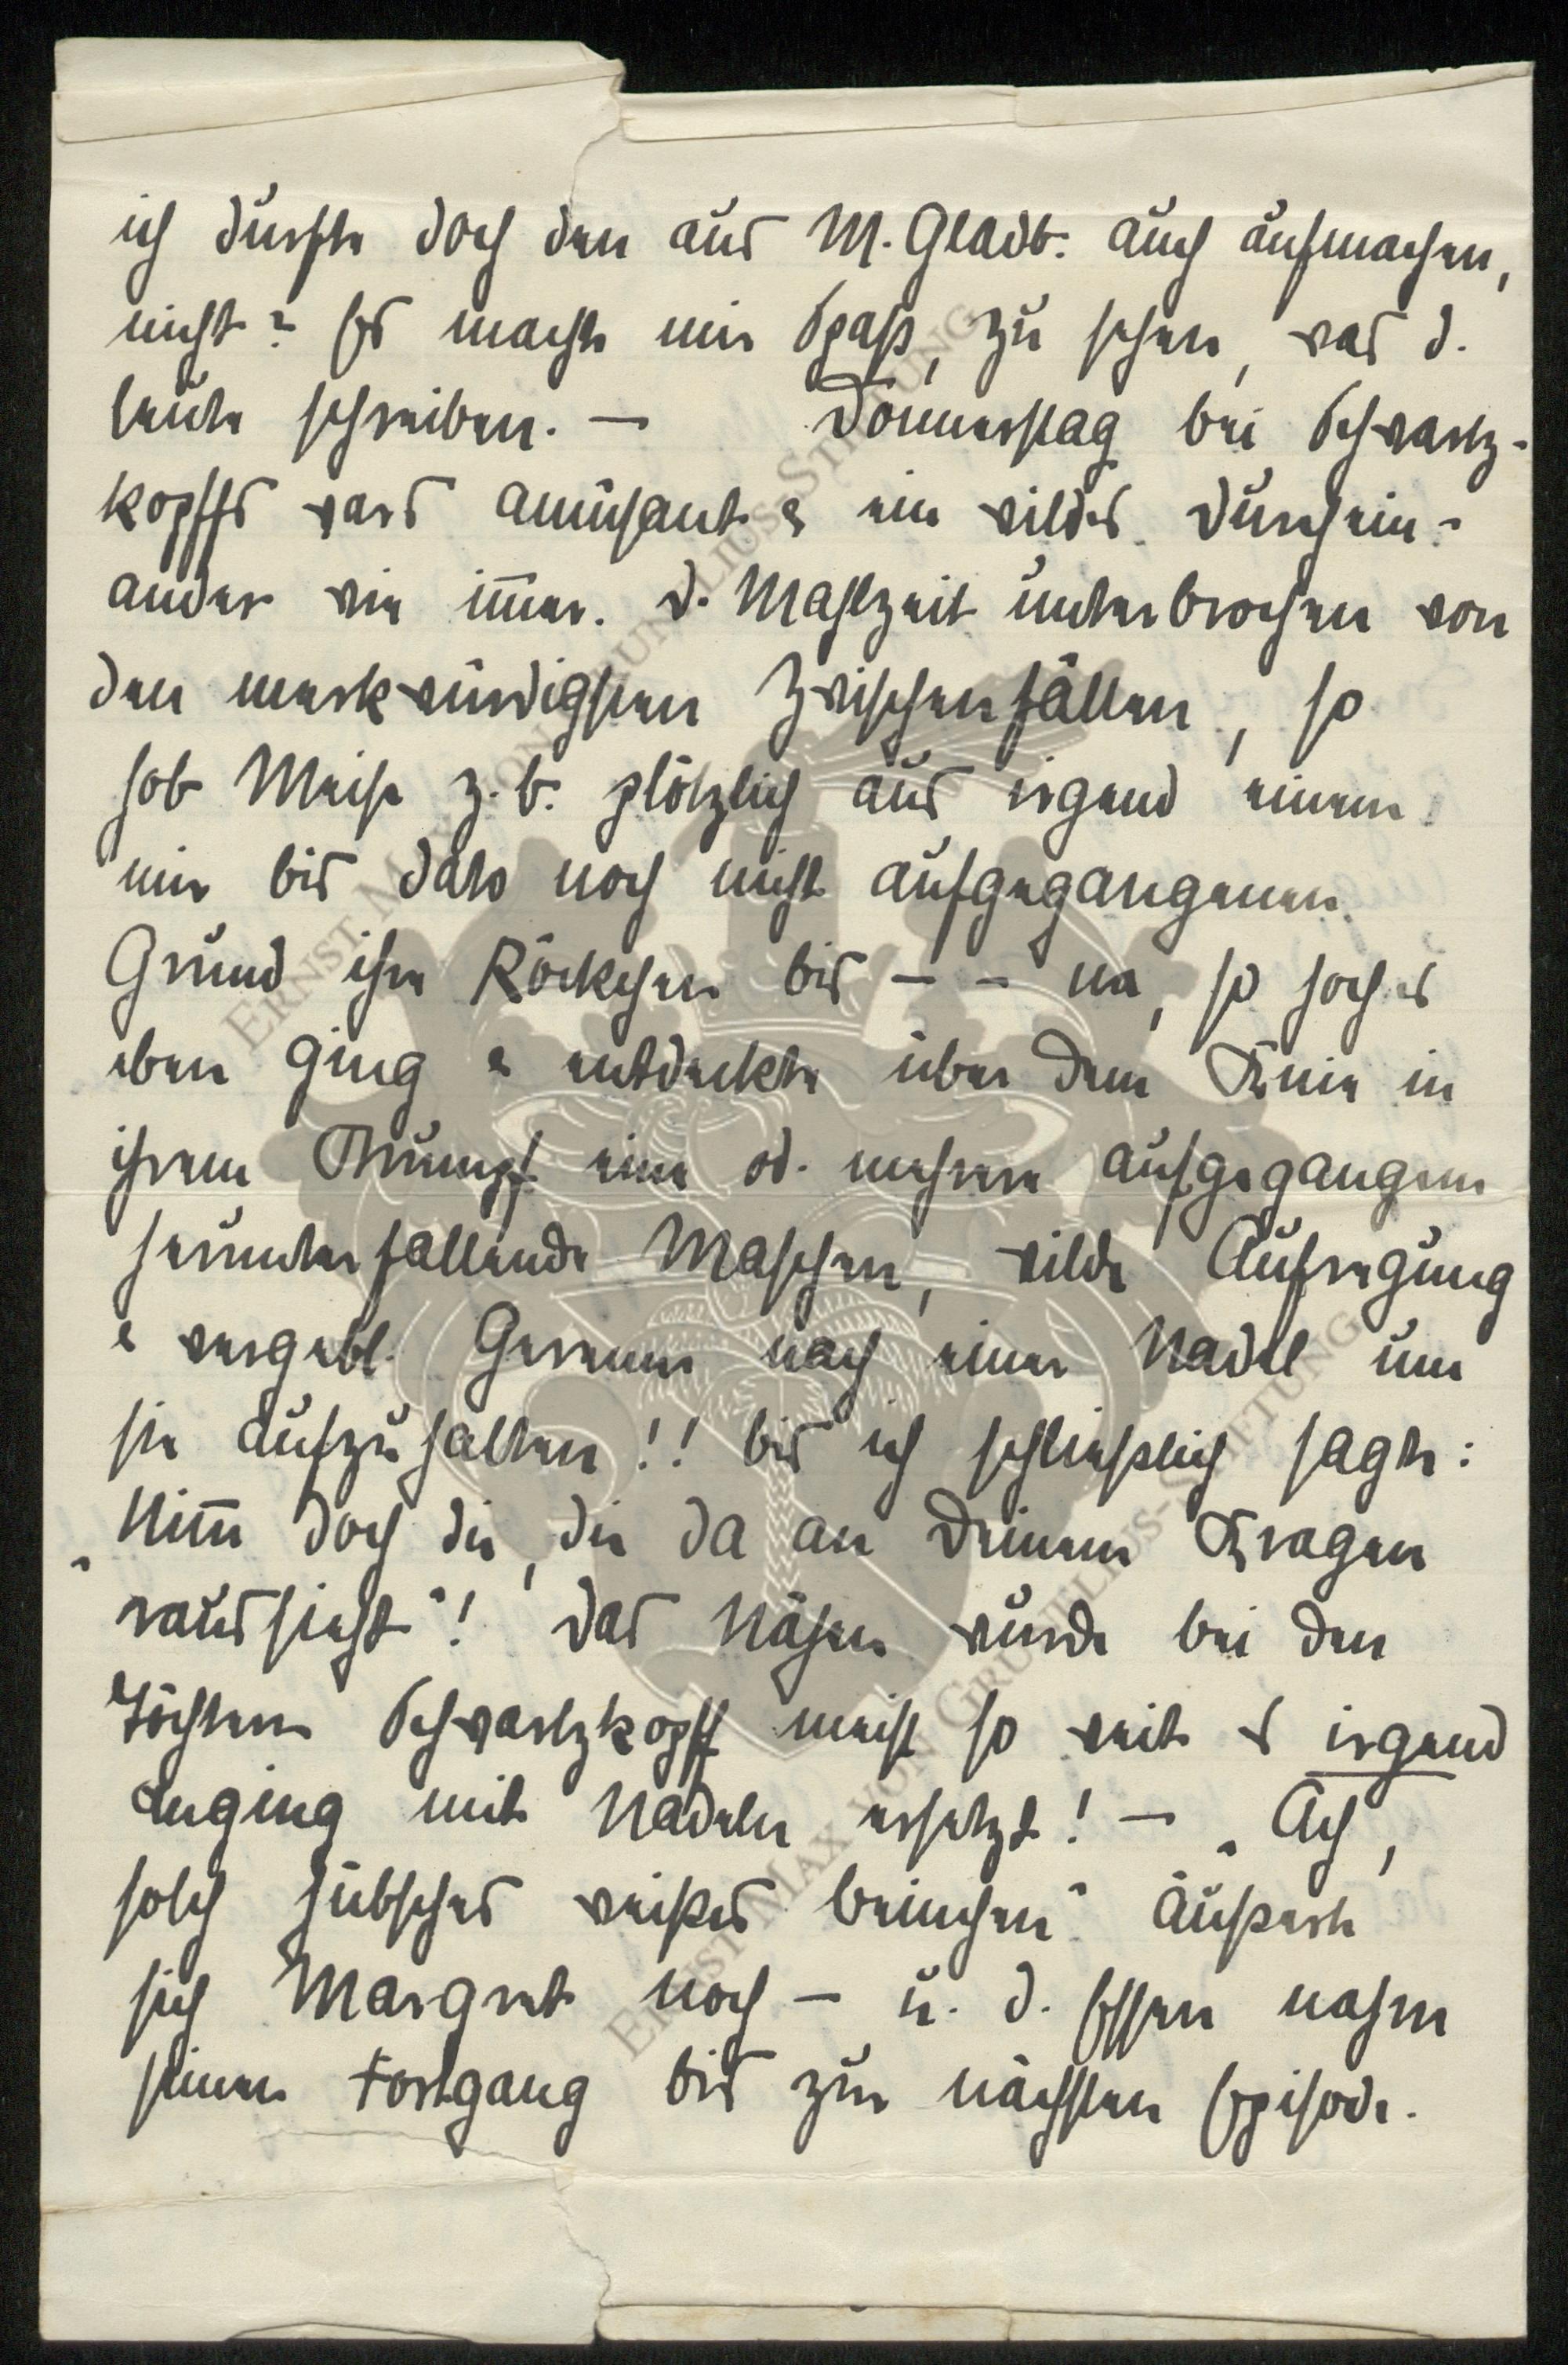 ich durfte doch den aus M. Gladb. auch aufmachen,
nicht? Es machte mir Spaß, zu sehen, was d.
Leute schreiben. — Donnerstag bei Schwartz-
kopffs wars amüsant & ein wildes Durchein-
ander wie im̄er. D. Mahlzeit unterbrochen von
den merkwürdigsten Zwischenfällen, so
hob Meise z. b. plötzlich aus irgend einem
mir bis dato noch nicht aufgegangenen
Grund ihre Röckchen bis — – na, so hoch es
eben ging & entdeckte über dem Knie in
ihrem Strumpf eine od. mehrere aufgegangene
herunterfallende Maschen, wilde Aufregung
& vergebl. Gerenne nach einer Nadel um
sie aufzuhalten!! bis ich schließlich sagte:
„Nim̄ doch die, die da an Deinem Kragen
raussieht"! Das Nähen wurde bei den
Töchtern Schwartzkopff meist so weit es irgend
anging mit Nadeln ersetzt! — „Ach,
solch hübsches weißes Beinchen" äußerte
sich Margret noch — u. d. Essen nahm
seinen Fortgang bis zur nächsten Episode.
ERNST MAX VON GRUNELIUS-STIFTUNG
ERNST MAX VON GRUNELIUS-STIFTUNG